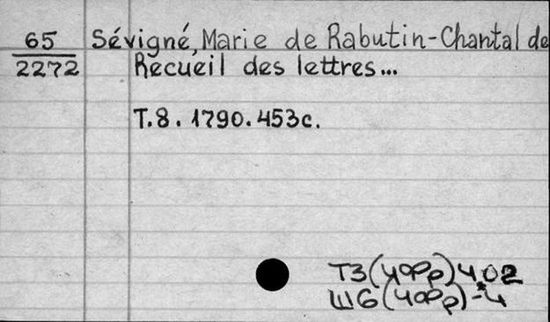 65
2272
Sévigné, Marie de Rabutin-Chantal de
Recueil des lettres...
T.8. 1790. 453c.
ТЗ(чорр)4.02
Ш6(чорр)-4